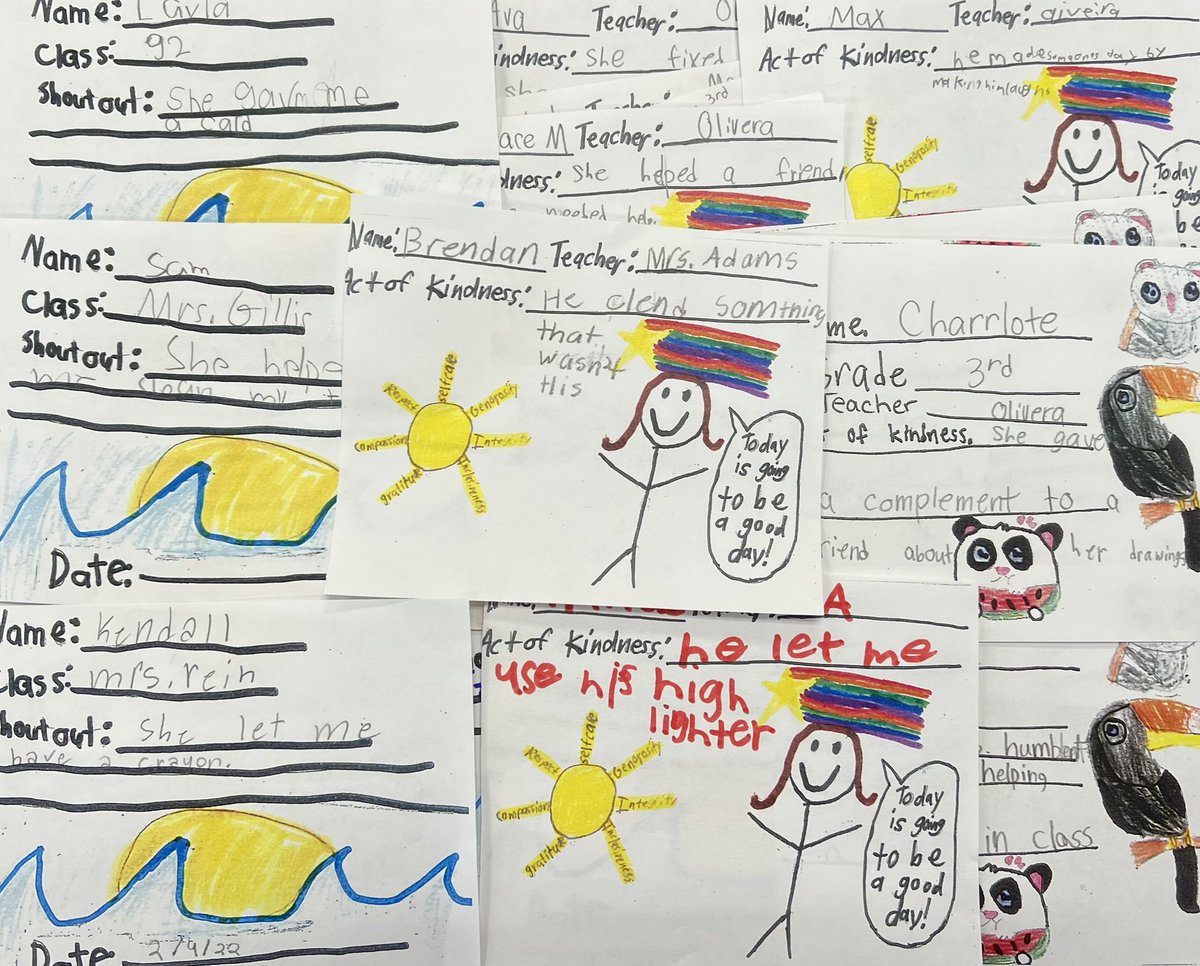 Name: Layla
Class: 92
Shoutout: She gavm me
a card
Ava Teacher: O
kindness: She fixed
she
3rd
ace M Teacher: Olivera
dness: She helped a friend
needed help
Name: Max Teacher: aiveira
Act of Kindness: he made someones day by
making him laugh
selfcare
Genorosity
Integrity
Today
is going
be
Name: Sam
Class: Mrs. Gillis
Shoutout: She helpe
me clean my
Date:
Name: Brendan Teacher: Mrs. Adams
Act of Kindness: He clend somthing
that
wasn't
His
selfcare
Respect
Genorosity
compassion
Integrity
gratitude
Inclusiveness
Today
is going
to be
a good
day!
me. Charrlote
Grade 3rd
Teacher Olivera
of kindness. She gave
a complement to a
friend about her drawings
Name: Kendall
Class: mrs. rein
Shoutout: she let me
have a crayon.
Date: 2/4/22
A
Act of Kindness: he let me
use his high
lighter
selfcare
Respect
Genorosity
compassion
Integrity
gratitude
Inclusiveness
Today
is going
to be
a good
day!
humblent
helping
in class